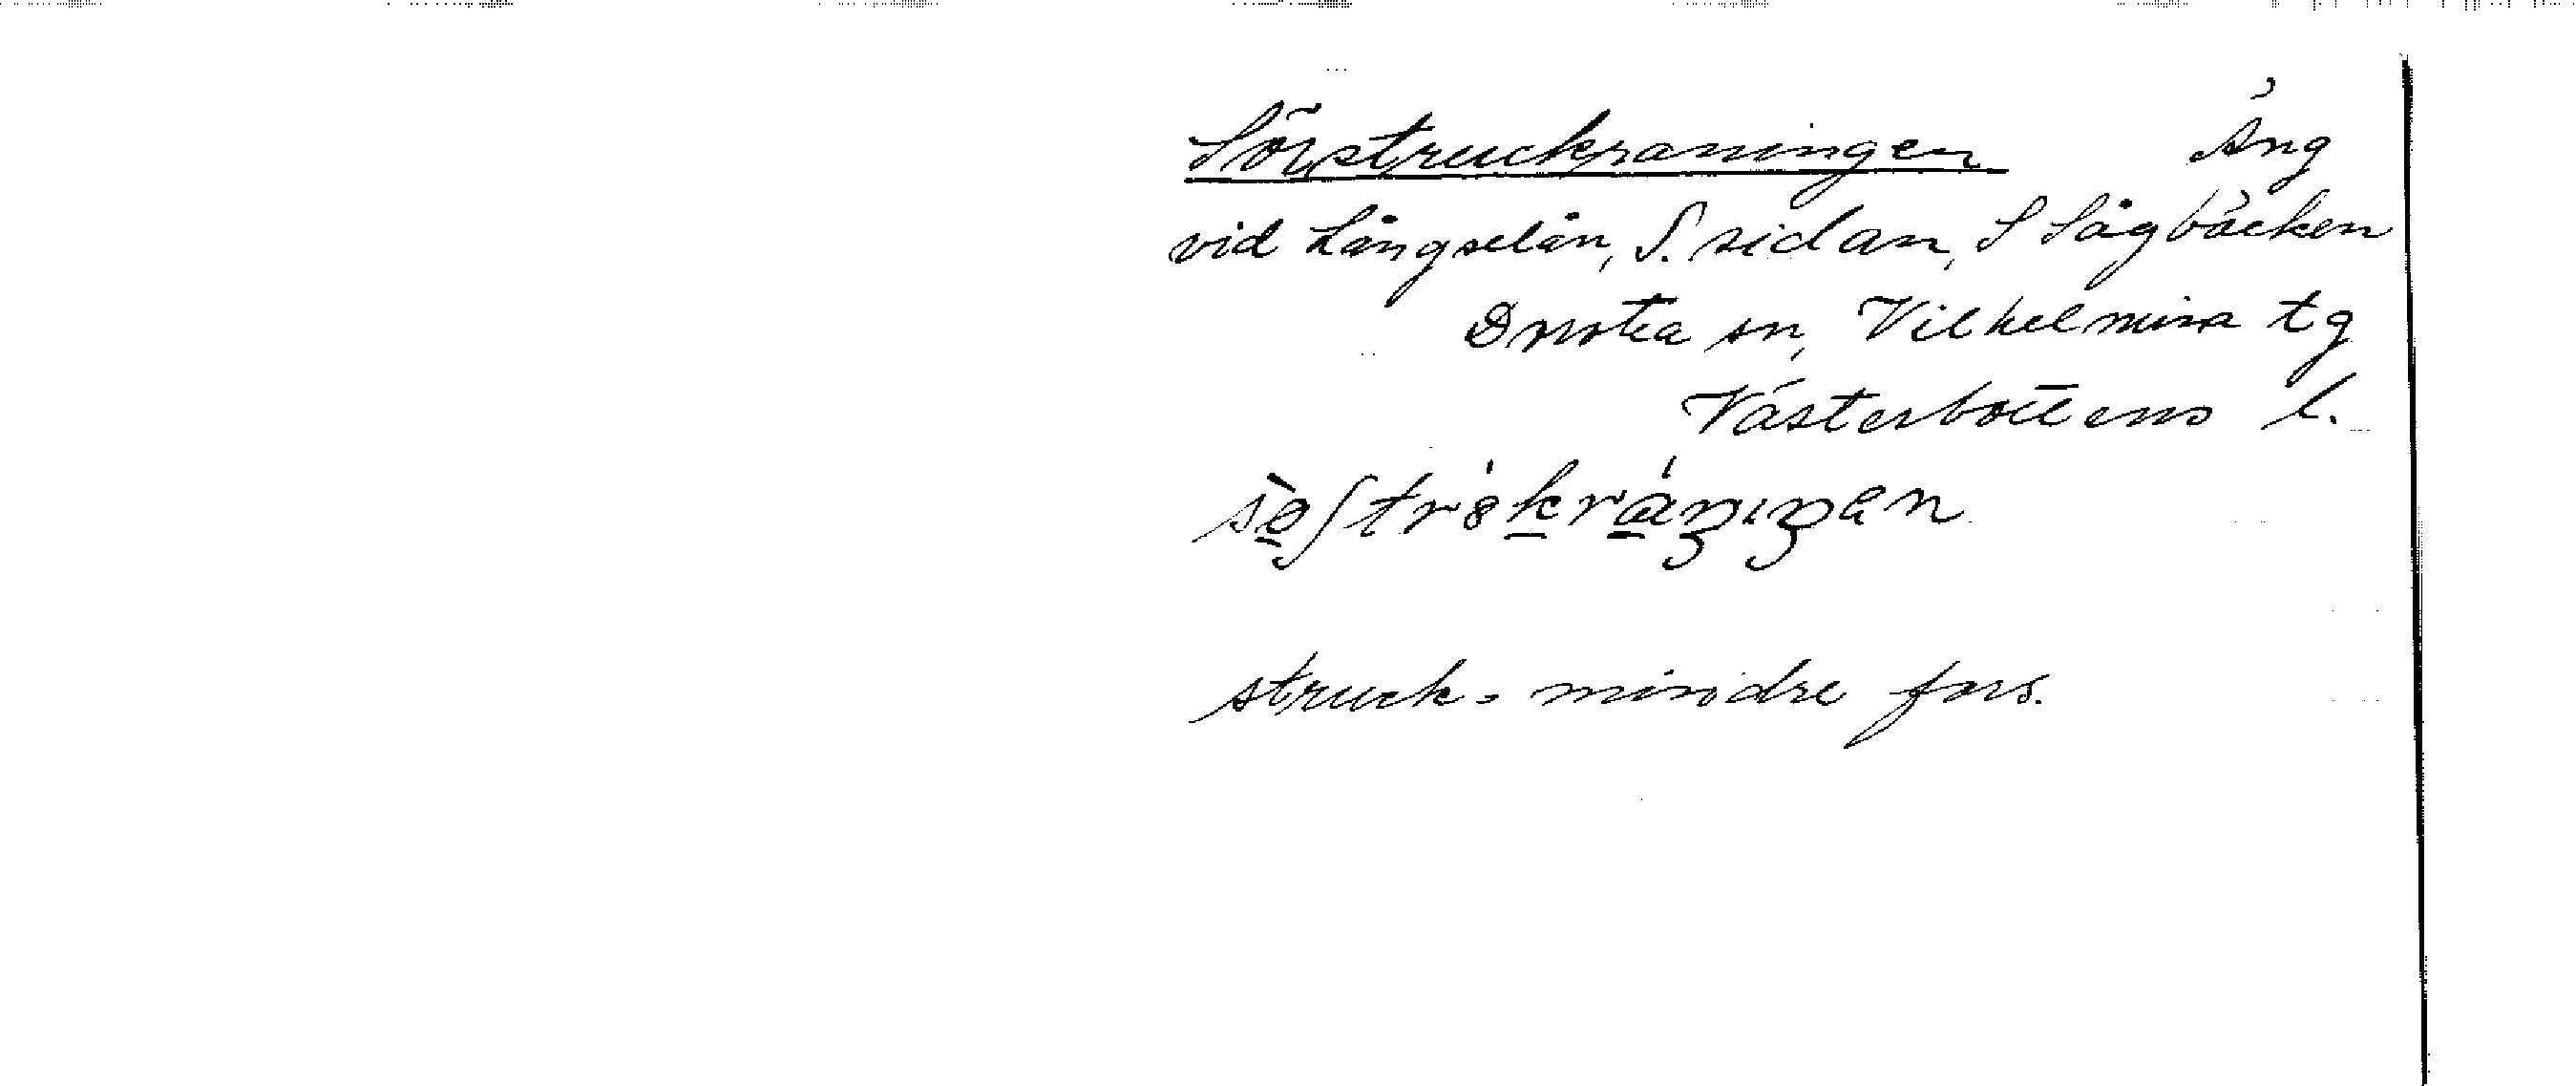 Sörstruckraningen Äng
vid Långselån, S. sidan, S Sågbäcken
Dorotea sn, Vilhelmina tg
Västerbottens l.
struck = mindre fors.